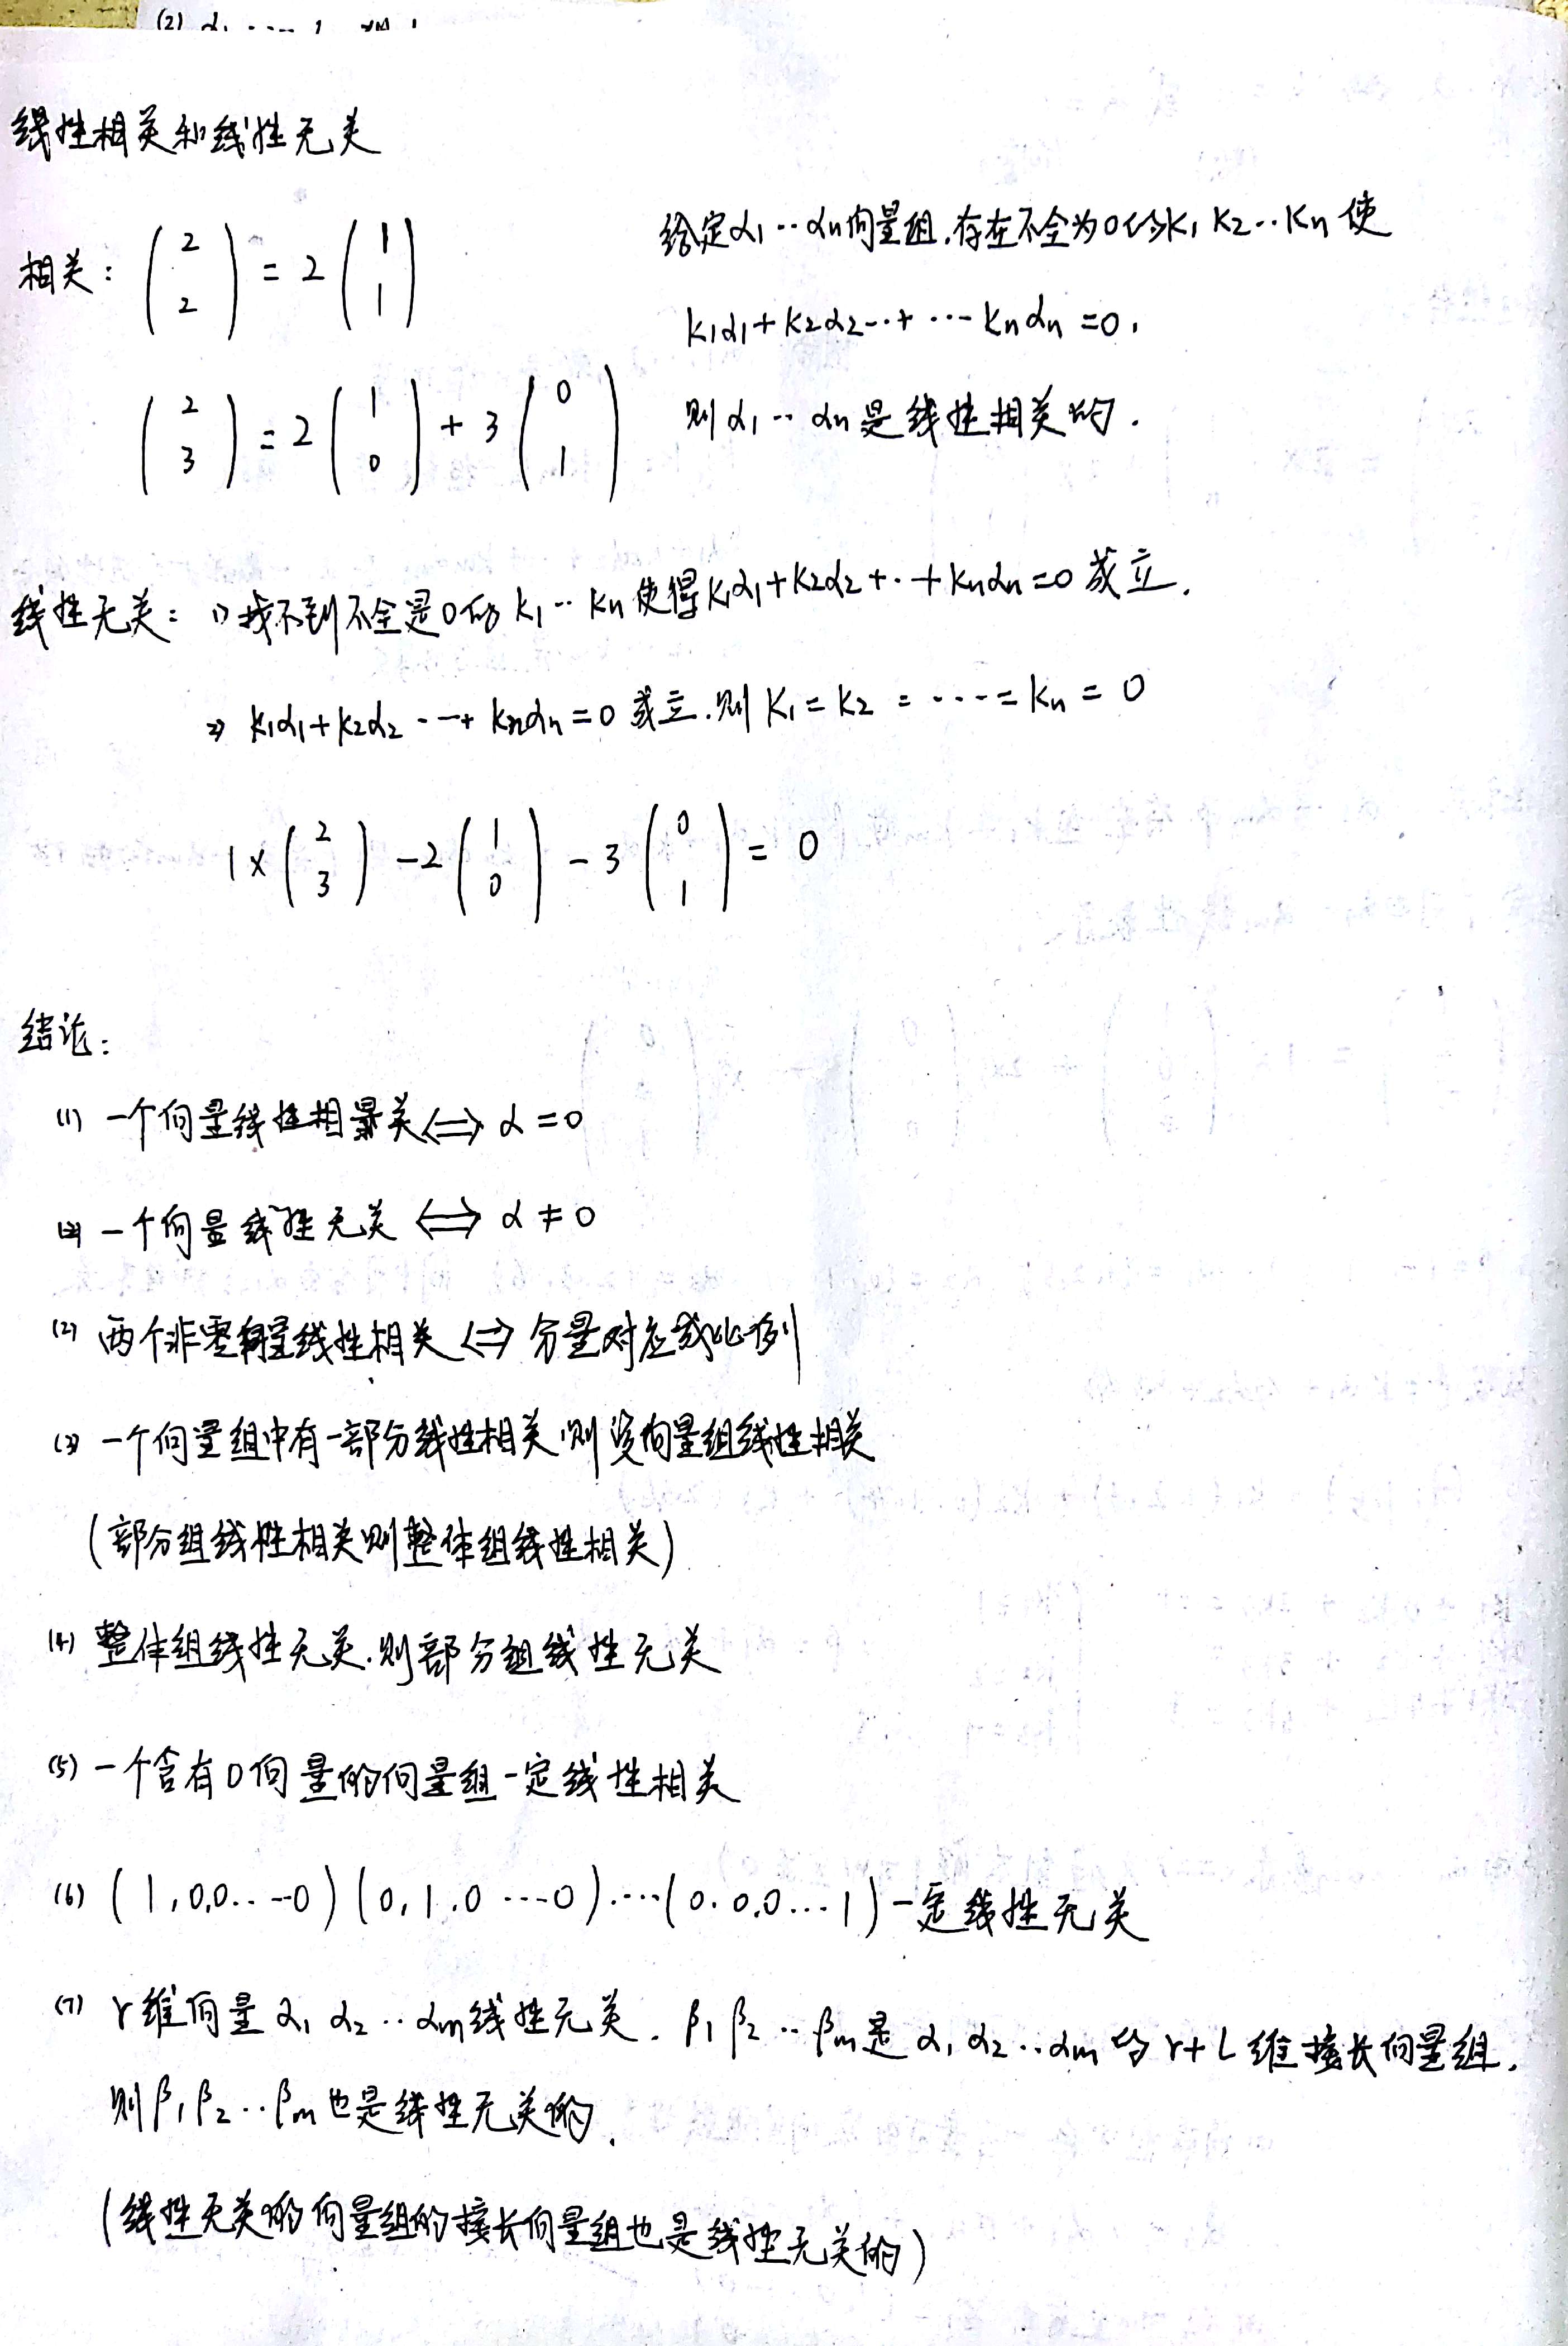 线性相关和线性无关
相关: (2 2) = 2 (1 1)
给定α1‥αn向量组,存在不全为0的k1 k2‥kn 使
k1α1+k2α2‥+ ⋯ knαn =0,
(2 3) = 2 (1 0) + 3 (0 1)
则α1‥αn是线性相关的.
线性无关: 1) 找不到不全是0的 k1‥kn 使得k1α1+k2α2+‥+knαn=0 成立.
2) k1α1+k2α2 ⋯+ knαn=0 成立.则 k1=k2=⋯⋯=kn=0
1×(2 3) −2(1 0) −3(0 1) = 0
结论:
(1) 一个向量线性相关⟺ α=0
一个向量线性无关 ⟺ α≠0
(2) 两个非零向量线性相关 ⟺ 分量对应成比例
(3) 一个向量组中有一部分线性相关,则该向量组线性相关
(部分组线性相关则整体组线性相关)
(4) 整体组线性无关.则部分组线性无关
(5) 一个含有0向量的向量组一定线性相关
(6) (1,0,0..--0)(0,1.0 ---0)⋯(0.0,0...1)一定线性无关
(7) r维向量α1 α2‥αm线性无关. β1 β2‥βm是 α1 α2‥αm 的 r+L 维接长向量组.
则β1 β2‥βm也是线性无关的.
(线性无关的向量组的接长向量组也是线性无关的)